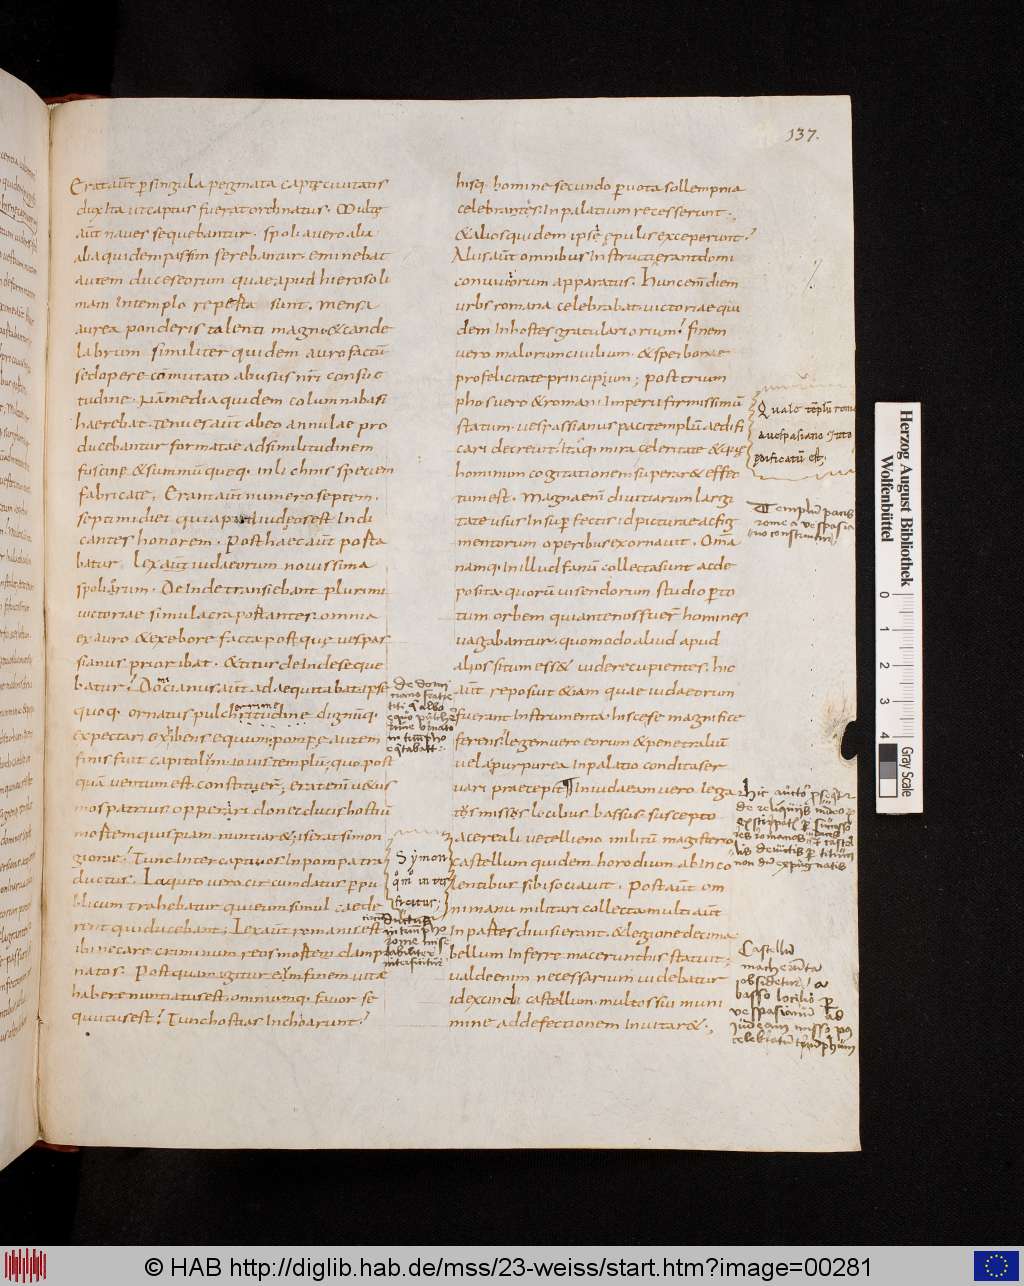 137.
Erat aut̄ p singula pegmata capte ciuitatis
dux ita ut captus fuerat ordinatus. Multę
aut̄ naues sequebantur. spolia uero alia
alia quidem passim ferebantur. eminebat
autem duces eorum quae apud hierosoli
mam In templo reperta sunt. Mensa
aurea ponderis talenti magni & cande
labrum similiter quidem auro factū
sed opere cōmutato ab usus nr̄i consue
tudine. Nā media quidem columna basi
haerebat. tenues aut̄ ab eo annulae pro
ducebantur formatae ad similitudinem
fuscinę & summū quoq. In lichnis speciem
fabricate. Erant aut̄ numero septem.
septimi diei qui apud iudęos est Indi
cantes honorem. Post haec aut̄ porta
batur. lex aut̄ iudaeorum nouissima
spoliorum. De Inde transiebant plurimi
uictoriae simulacra portantes. omnia
ex auro & ex ebore facta. post quę uespas
sianus prior ibat. & titus de Inde seque
batur. Domicianus aut̄ adaequitabat ipse
quoq. ornatus pulchritudine dignūq.
expectari exhibens equum. pompę autem
finis fuit capitolini iouis templū. quo post
quā uentum est constituer. erat enī uetus
mos patrius. opperiri donec ducis hostiū
mortem quispiam nuntiar&. is erat simon
giorae. Tunc Inter captiuos In pompa tra
ductus. Laqueo uero circumdatur p pu
blicum trahebatur quieum simul caede
rent qui ducebant. Lex aut̄ romanis est
ibi necare criminum reos mortem damp
natos. Postquam igitur eum finem uitae
habere nuntiatus est. omniumq. fauor se
quutus est. Tunc hostias Inchoarunt.
hisq. homine secundo p uota sollempnia
celebrantes. In palatium recesserunt.
& alios quidem ipse epulis exceperunt.
Aliis aut̄ omnibus Instructi erant domi
conuiuorum apparatus. Hunc enī diem
urbs romana celebrabat. uictoriae qui
dem In hostes gratulariorum. finem
uero malorum ciuilium. & spei bonae
pro felicitate principium. post trium
phos uero & romani Imperii firmissimū
statum. uespassianus paci templū aedifi
cari decreuit. Itaq. mira celeritate & quę
hominum cogitationem superar& effec
tum est. Magna enī diuitiarum largi
tate usus. Insup fectis id picturae ac fig
mentorum operibus exornauit. Omīa
namq. In illud fanū collecta sunt ac de
posita. quorū uisendorum studio p to
tum orbem qui antenos fuer̄ homines
uagabantur. quomodo aliud apud
alios situm ess& uidere cupientes. hic
aut̄ reposuit & iam quae iudaeorum
fuerant Instrumenta. his sese magnifice
ferens. legem uero eorum & penetraliū
uela purpurea In palatio condita ser
uari praecepit. ¶ In iudaeam uero lega
tus missus lucilius bassus. suscepto
a cereali uetelieno militū magisterio
castellum quidem horodium ab Inco
lentibus sibi sociauit. Post aut̄ om
nimanu militari collecta multi aut̄
In partes diuisi erant. & legione decima
bellum Inferre macerunthis statuit.
ualde enim necessarium uidebatur
id excindi castellum. multos sui muni
mine ad defectionem Inuitar&.
Quale tēplū rome
a uespasiano & tito
edificatū est
Templū pacis
rome a vespasia
no constructum
de domi
ciano fratre
titi
Symon
Castellū
macherūta
obsidetur a
basso lucilio p
vespasianum ad
iudeam misso post
celebratū triūphum
Herzog August Bibliothek
Wolfenbüttel
0 1 2 3 4
Gray Scale
© HAB http://diglib.hab.de/mss/23-weiss/start.htm?image=00281